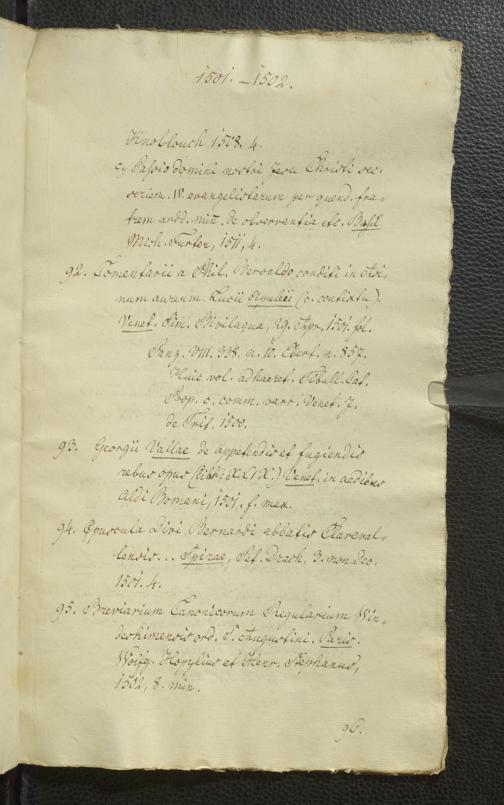 1501. – 1502.
Knoblouch 1508. 4.
c) Passio domini nostri Jesu Christi sec.
seriem. IV. evangelistarum per quend. fra-
trem ord. min. de observantia etc. Basil
Mich. Furter, 1511, 4.
92. Comentarii a Phil. Beroaldo conditi in Asi-
num aureum. Lucii Apuleii (c. contextu).
Venet. Sim. Bivilaqua, 29. Apr. 1501. fol.
Panz. VIII. 338. n. 10. Ebert. n. 857.
Huic vol. adhaeret. Tibull. Cat.
Prop. c. comm. varr. Venet. J.
de Trid. 1500.
93. Georgii Vallae de appetendis et fugiendis
rebus opus Venet. in aedibus
Aldi Romani, 1501. f. max.
94. Opuscula Divi Bernardi abbatis Clareval-
lensis... Spirae, Pet. Drach, 3. non. Dec.
1501. 4.
95. Breviarium Canonicorum Regularium Win-
deshimensis ord. S. Augustini. Paris.
Wolfg. Hopylius et Henr. Stephanus,
1502, 8. min.
96.